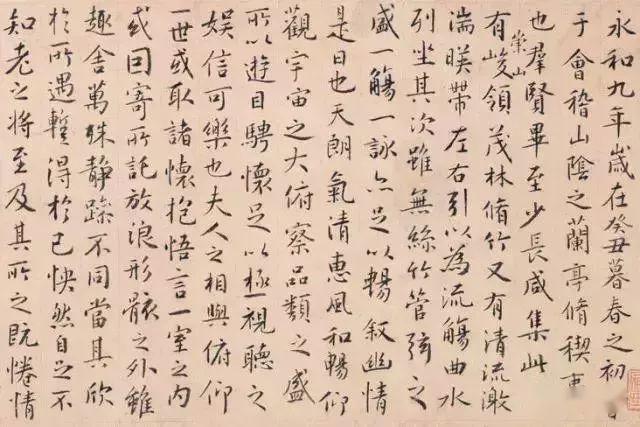 永和九年歲在癸丑暮春之初
于會稽山陰之蘭亭脩稧事
也羣賢畢至少長咸集此
有崇山峻領茂林脩竹又有清流激
湍暎帶左右引以為流觴曲水
列坐其次雖無絲竹管弦之
盛一觴一詠亦足以暢叙幽情
是日也天朗氣清惠風和暢仰
觀宇宙之大俯察品類之盛
所以遊目騁懷足以極視聽之
娛信可樂也夫人之相與俯仰
一世或取諸懷抱悟言一室之內
或因寄所託放浪形骸之外雖
趣舍萬殊静躁不同當其欣
於所遇蹔得於己怏然自足不
知老之將至及其所之既惓情